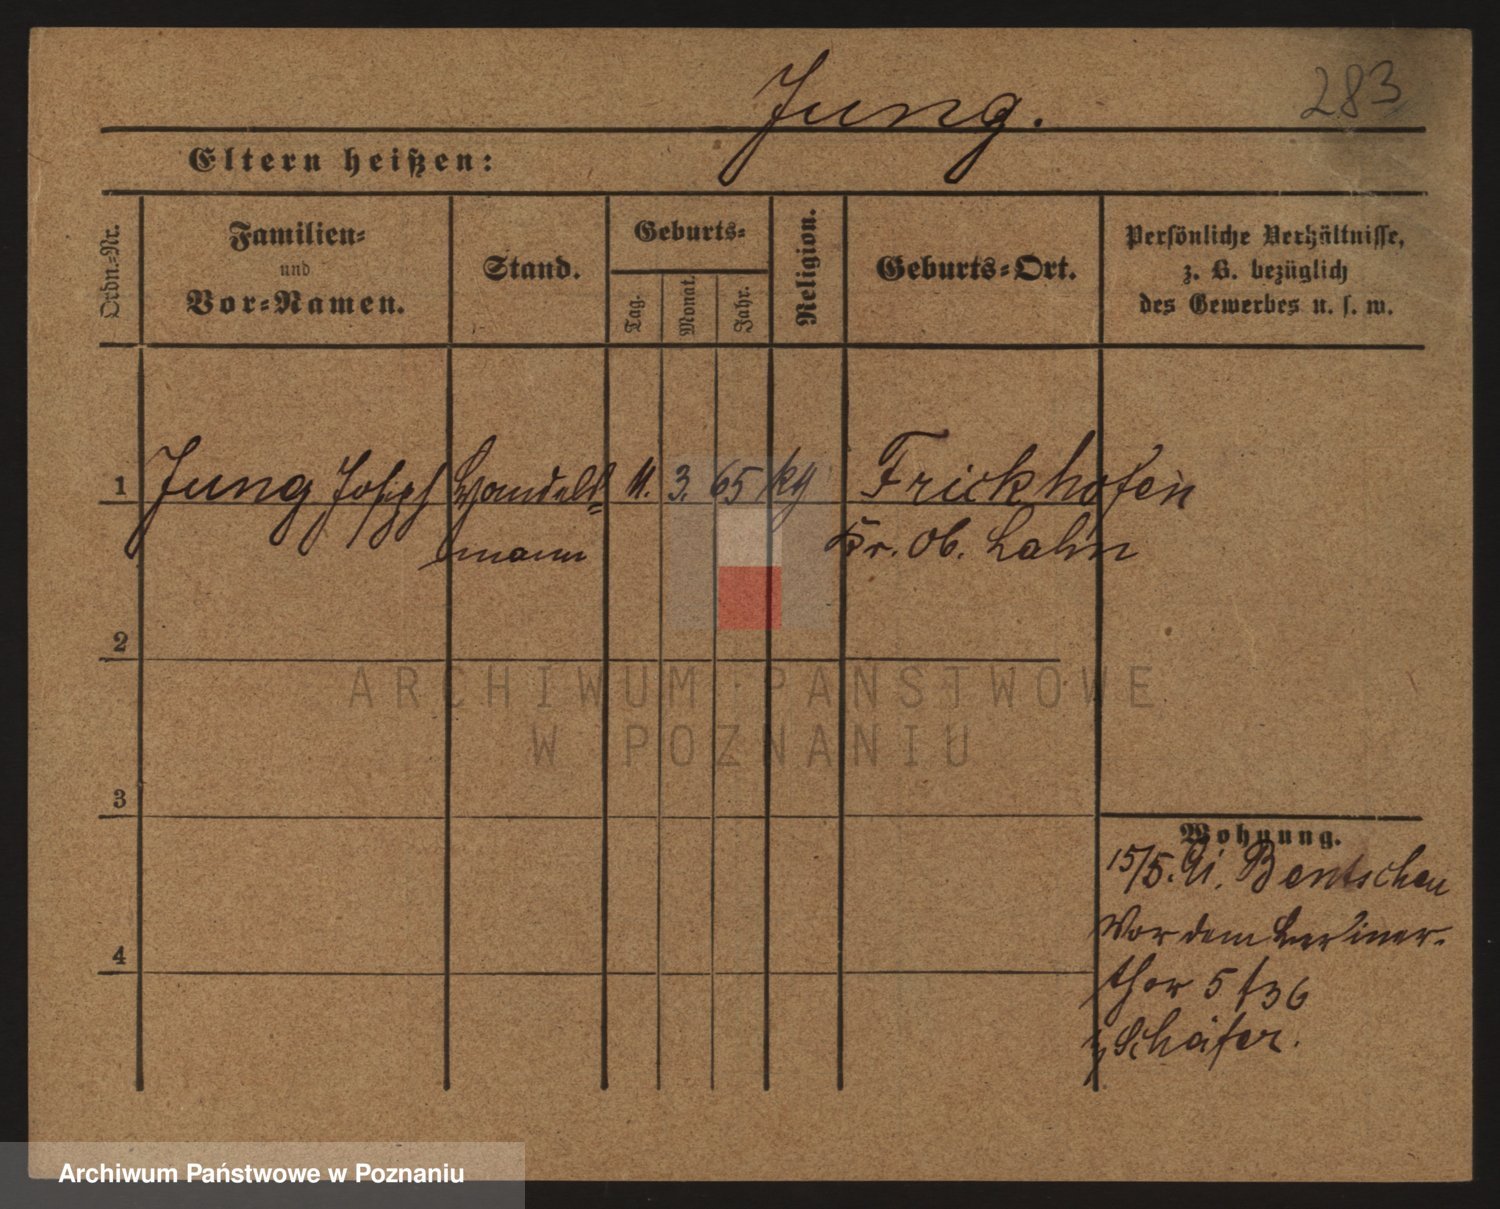 283
Jung.
Eltern heißen:
Ordn.-Nr.
Familien-
und
Vor-Namen.
Stand.
Geburts-
Tag.
Monat.
Jahr.
Religion.
Geburts-Ort.
Persönliche Verhältnisse,
z. B. bezüglich
des Gewerbes u. s. w.
1 Jung Joseph Handels- 11. 3. 65 Frickhofen
mann Kr. Ob. Lahn
2
ARCHIWUM PAŃSTWOWE
W POZNANIU
3
Wohnung.
15/5. 91. Bentschen
Vor dem Berliner-
4
thor 5 f 36
Schäfer.
Archiwum Państwowe w Poznaniu